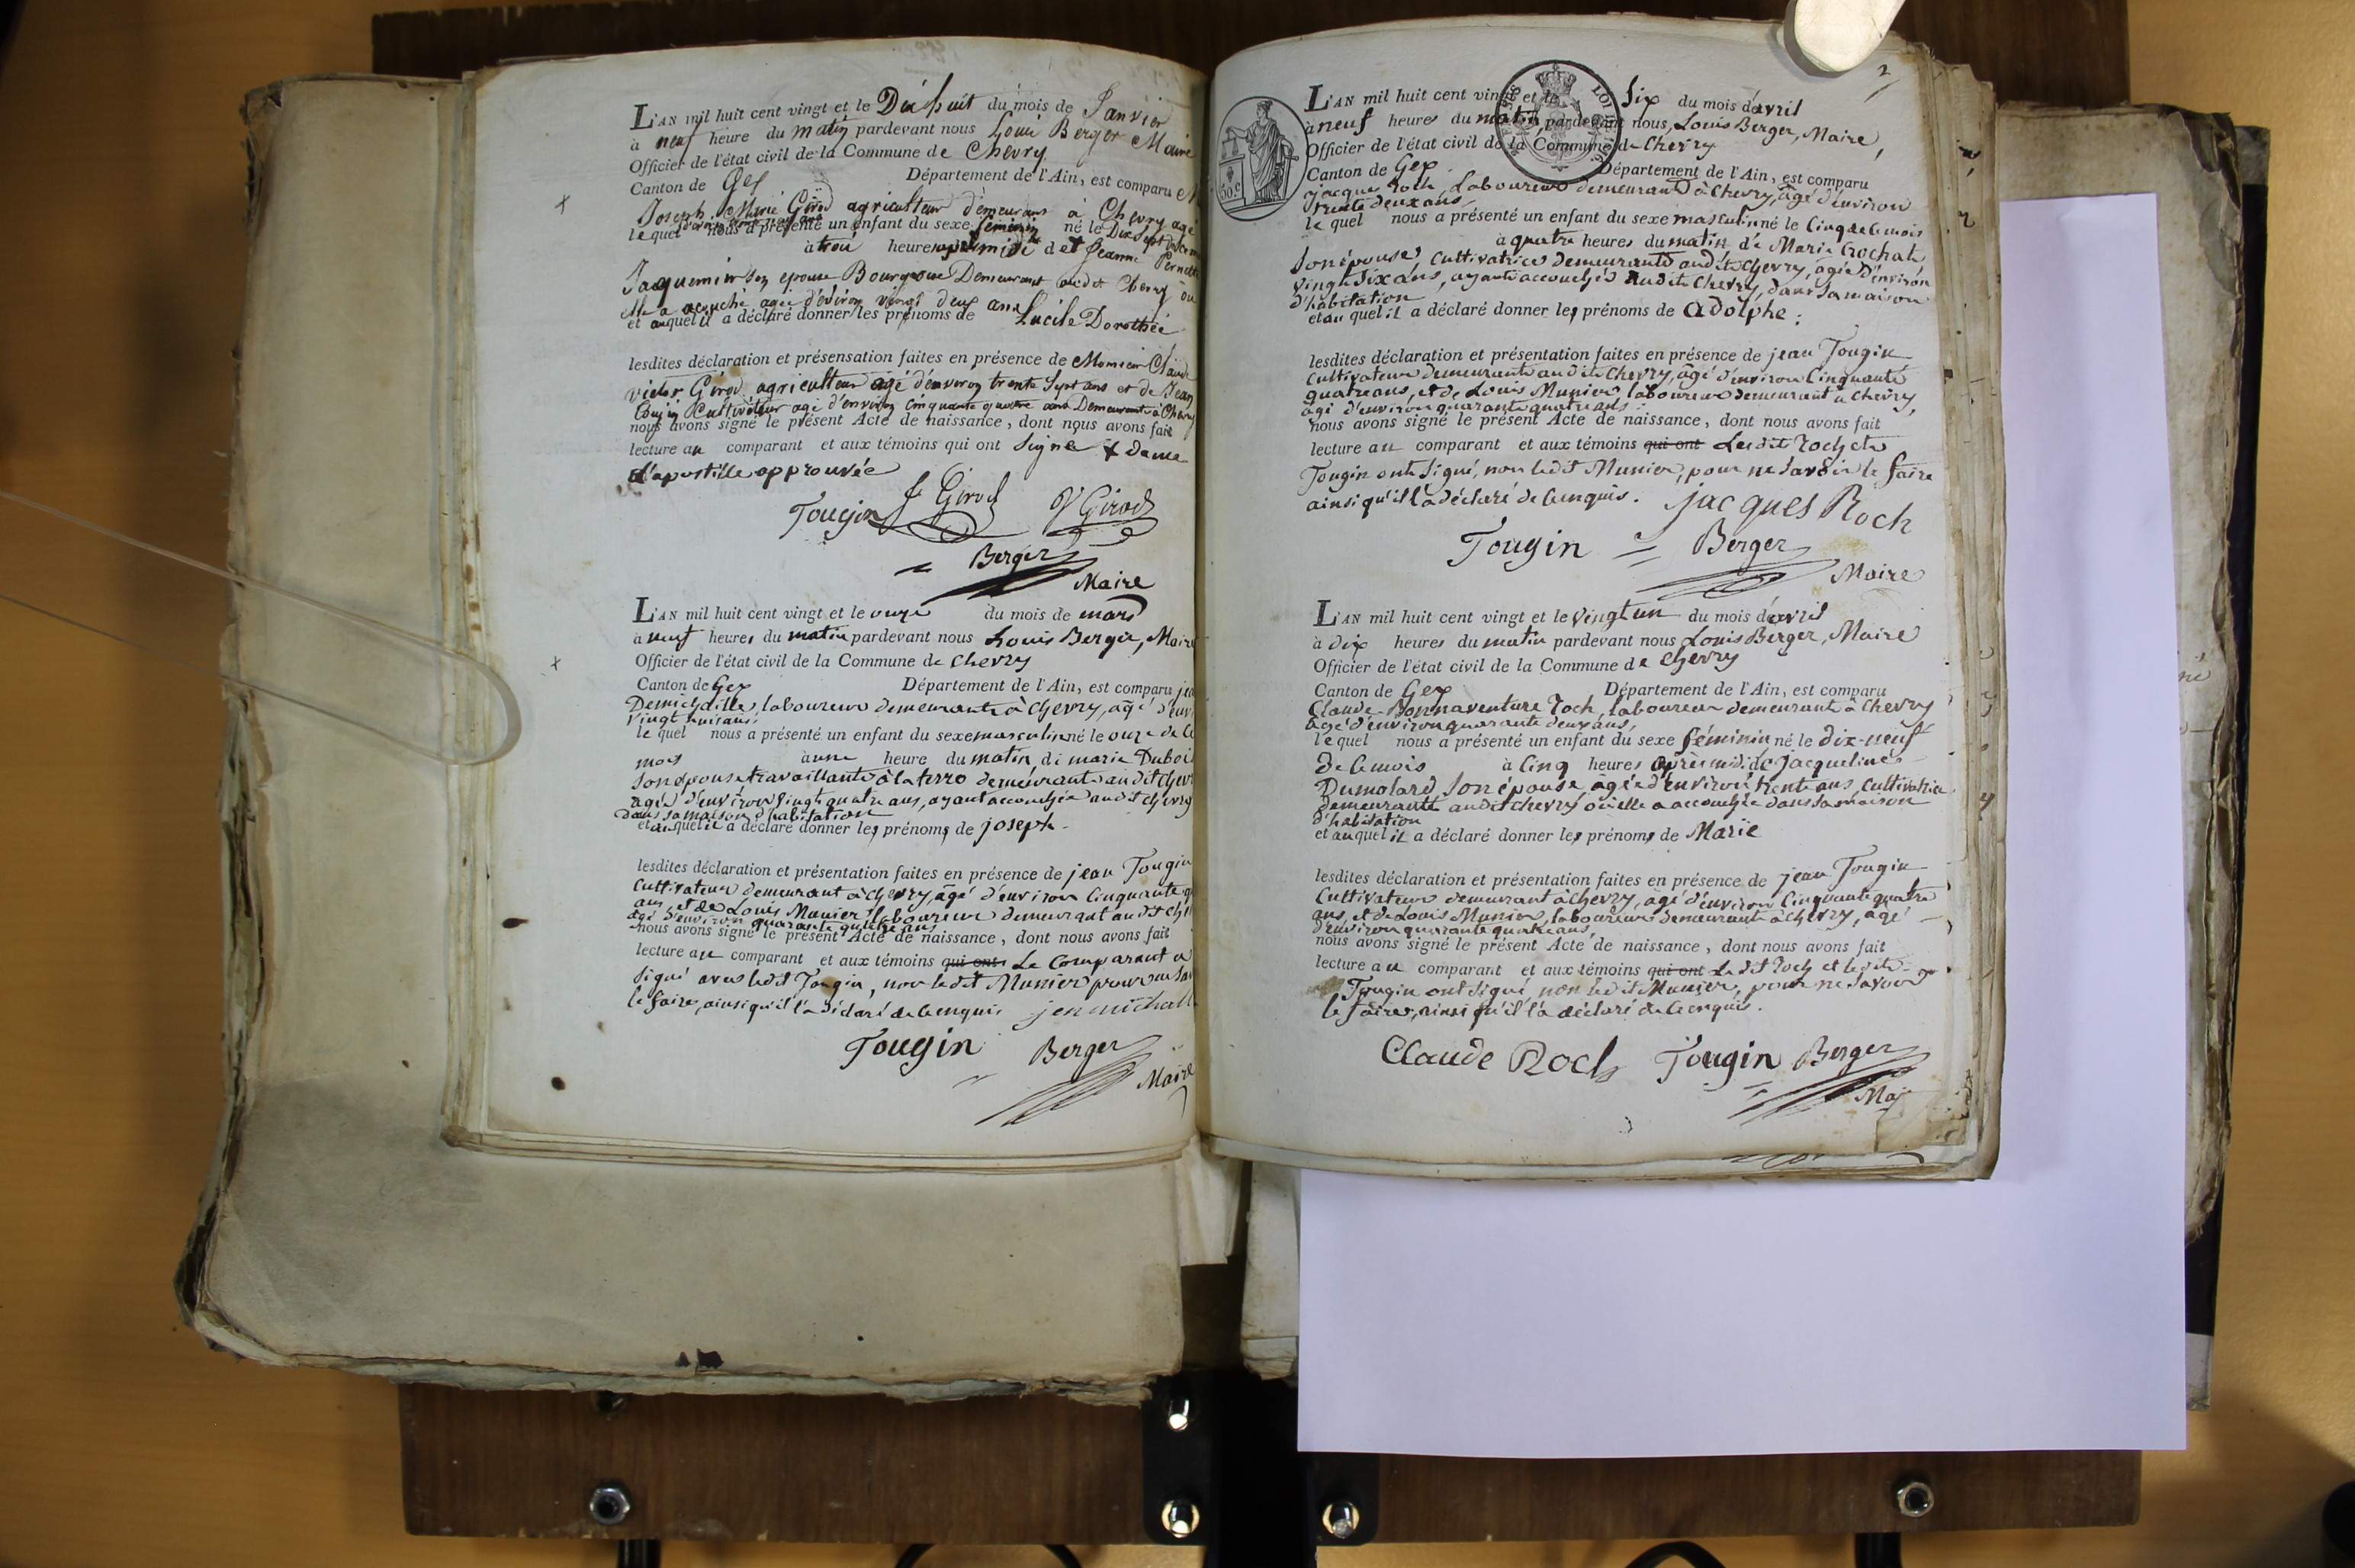 L'AN mil huit cent vingt et le Dix huit du mois de Janvier
à neuf heure du matin pardevant nous Louis Berger Maire
Officier de l'état civil de la Commune de Chevry
Canton de Gex Département de l'Ain, est comparu
Joseph Marie Girod agriculteur demeurant à Chevry agé
lequel nous a présenté un enfant du sexe feminin né le Dix Sept
à trois heures de Jeanne Pernette
Jaquemier son epouse Bourgeoise Demeurant audit Chevry ou
elle a acouché agée d'environ vingt deux ans
et auquel il a déclaré donner les prénoms de Lucile Dorothée
lesdites déclaration et présensation faites en présence de Monsieur Claude
victor Girod agriculteur agé d'environ trente Sept ans et de Jean
Tougin Cultivateur agé d'environ cinquante quatre ans Demeurant à Chevry
nous avons signé le présent Acte de naissance, dont nous avons fait
lecture au comparant et aux témoins qui ont signé
l'apostille approuvée
Tougin J Girod V Girod
Berger
Maire
L'AN mil huit cent vingt et le onze du mois de mars
à neuf heures du matin pardevant nous Louis Berger, Maire
Officier de l'état civil de la Commune de Chevry
Canton de Gex Département de l'Ain, est comparu
Demichaille, laboureur demeurant à Chevry, agé d'env
vingt huit ans
le quel nous a présenté un enfant du sexe masculin né le onze de ce
mois à une heure du matin de marie Dubois
son épouse, travaillant à la terre demeurante audit Chevry
agée d'environ vingt quatre ans, ayant accouchée audit Chevry
dans sa maison d'habitation
et auquel il a déclaré donner les prénoms de joseph
lesdites déclaration et présentation faites en présence de jean Tougin
cultivateur demeurant à Chevry, âgé d'environ Cinquante q
ans, et de Louis Munier laboureur demeurant audit Ch
agé d'environ quarante quatre ans
nous avons signé le présent Acte de naissance, dont nous avons fait
lecture au comparant et aux témoins qui ont Le Comparant a
signé avec ledit Tougin, non ledit Munier pour
le faire, ainsi qu'il l'a déclaré de ce enquis jen michall
Tougin Berger
Maire
2
L'AN mil huit cent vingt et le Six du mois d'avril
à neuf heures du matin pardevant nous, Louis Berger, Maire,
Officier de l'état civil de la Commune de Chevry
Canton de Gex Département de l'Ain, est comparu
jacques Roch, Laboureur demeurant à Chevry, âgé d'environ
trente deux ans,
le quel nous a présenté un enfant du sexe masculin né le Cinq de ce mois
à quatre heures du matin de Marie Crochat
son épouse, cultivatrice demeurante audit Chevry, agée d'environ
vingt Six ans, ayant accouchée audit Chevry, dans sa maison
d'habitation
et au quel il a déclaré donner les prénoms de Adolphe;
lesdites déclaration et présentation faites en présence de jean Tougin
Cultivateur demeurant audit Chevry, âgé d'environ Cinquante
quatre ans, et de Louis Munier, laboureur demeurant à Chevry,
âgé d'environ quarante quatre ans
nous avons signé le présent Acte de naissance, dont nous avons fait
lecture au comparant et aux témoins qui ont Ledit Roch et
Tougin ont signé, non ledit Munier, pour ne savoir le faire
ainsi qu'il l'a déclaré de ce enquis. jacques Roch
Tougin Berger
Maire
L'AN mil huit cent vingt et le vingt un du mois d'avril
à dix heures du matin pardevant nous Louis Berger, Maire
Officier de l'état civil de la Commune de Chevry
Canton de Gex Département de l'Ain, est comparu
Claude-Bonnaventure Roch, laboureur demeurant à Chevry
agé d'environ quarante deux ans,
le quel nous a présenté un enfant du sexe féminin né le dix-neuf
de ce mois à Cinq heures après midi de Jacqueline
Dumolard son épouse, âgée d'environ trente ans, Cultivatrice
demeurante audit Chevry où elle a accouchée dans sa maison
d'habitation
et auquel il a déclaré donner les prénoms de Marie
lesdites déclaration et présentation faites en présence de jean Tougin
Cultivateur demeurant à Chevry, agé d'environ Cinquante quatre
ans, et de Louis Munier, laboureur demeurant à Chevry, agé
d'environ quarante quatre ans,
nous avons signé le présent Acte de naissance, dont nous avons fait
lecture au comparant et aux témoins qui ont Ledit Roch et ledit
Tougin ont signé non ledit Munier, pour ne savoir
le faire, ainsi qu'il l'a déclaré de ce enquis.
Claude Roch Tougin Berger